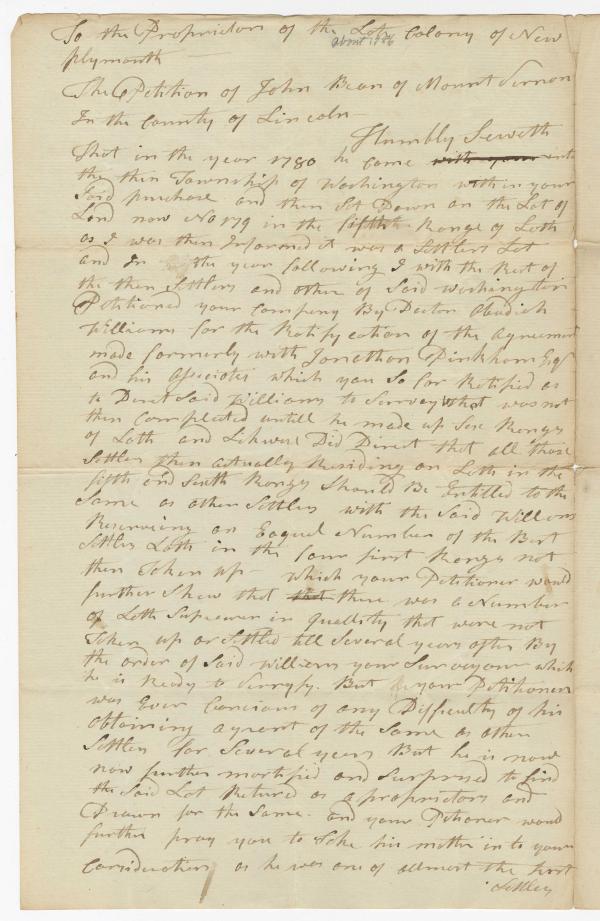 To the Proprietors of the Late Colony of New
about 1786
plymouth
The Petition of John Bean of Mount Vernon
In the County of Lincoln
Humbly Seweth
That in the year 1780 he Came with your into
the then Township of Washington within your
Said purchase and then Set Down on the Lot of
Land now No 179 in the fifth Range of Loth
as I was then Informed it was a Settlers Lot
and In the year following I with the Rest of
the then Settlers and other of Said Washington
Petitioned your Company By Doctor Obadiah
Williams for the Ratifycation of the Agreement
made formerly with Jonathan Pinkham Esqr
and his Asociates which you So far Ratified as
to Direct Said Williams to Survey what was not
then Compleated untill he made up Six Ranges
of Loth and Likware Did Direct that all those
Settlers then actually Residing on Loth in the
fifth and Sixth Ranges Should Be Entitled to the
Same as other Settlers with the Said Williams
Reserving an Eaquel Number of the Best
Settlers Loth in the four first Ranges not
then Taken up which your Petitioner would
further Shew that that there was a Number
of Loth Supearer in quallity that were not
Taken up or Settled till Several years after By
the order of Said Williams your Surveyour which
he is Ready to Verryfy. But your Petitioner
was Ever Consious of any Difficulty of his
obtaining a grant of the Same as other
Settlers for Several years But he is now
now further mortified and Surprised to find
the Said Lot Retured as a proprietors and
Drawn for the Same. and your Petioner would
further pray you to Take his matter in to your
Consideration as he was one of allmost the first
Settlers